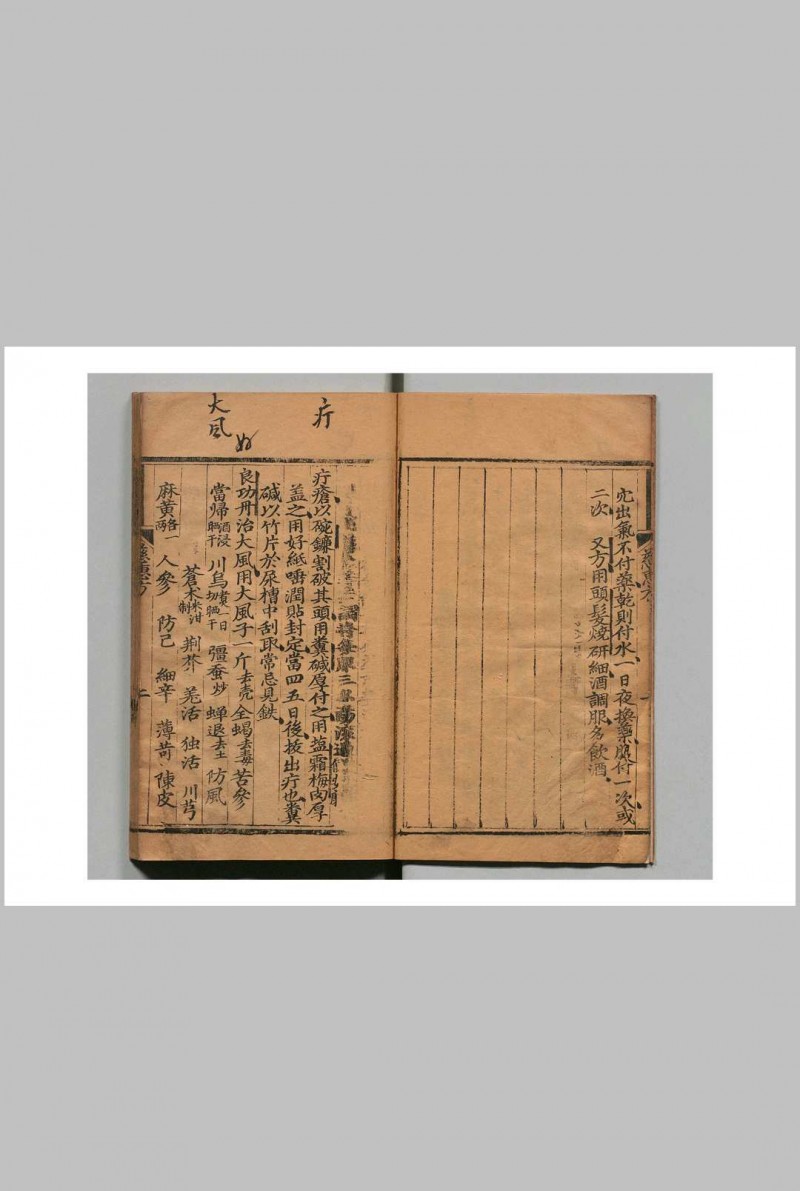 宂出氣不付藥乾則付水一日夜換藥質付一次或
二次　又方用頭髮燒研細酒調服多飲酒
疔
大風
疔瘡以碗鐮割破其頭用糞碱厚付之用塩霜梅肉厚
盖之用好紙噃潤貼封定當四五日後拔出疔也糞
碱以竹片於尿槽中刮取常忌見鉄
良功丹治大風用大風子一斤去壳全蝎去毒苦參
當帰酒浸晒干　川烏煮一日切晒干　彊蚕炒　蝉退去土　防風
蒼木米泔制　荆芥　羌活　独活　川芎
麻黄各一両　人參　防己　細辛　薄苛　陳皮
二